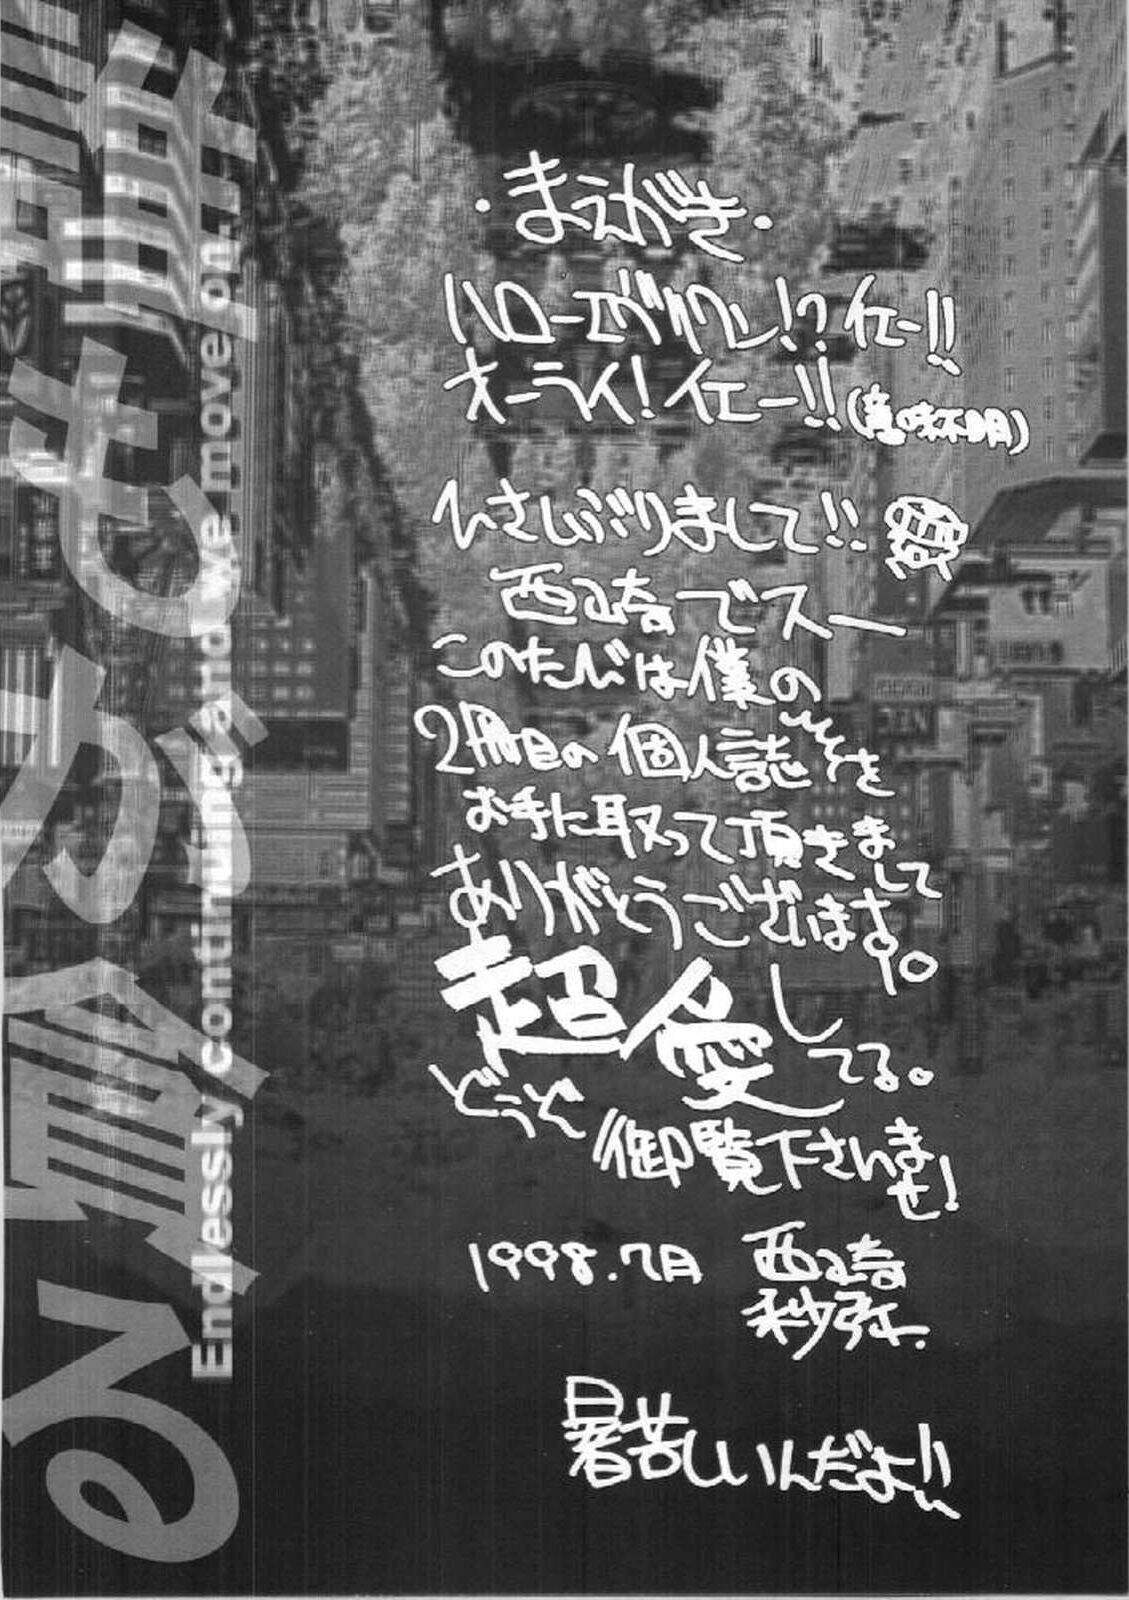 ・まえがき・
ハローエヴリワン!? イエー!!
オーライ! イエー!! (意味不明)
ひさしぶりまして!!
西崎でスー
このたびは僕の
2冊目の個人誌を
お手に取って頂きまして
ありがとうございます。
超愛してる。
どうぞ御覧下さいませ!
1998.7月 西崎
秒弥.
暑苦しいんだよ!!
Endlessly continuing and we move on.